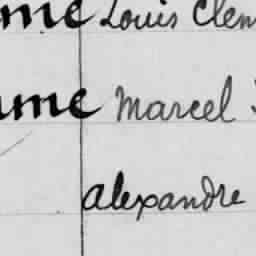 me Louis Clem
me Marcel
Alexandre